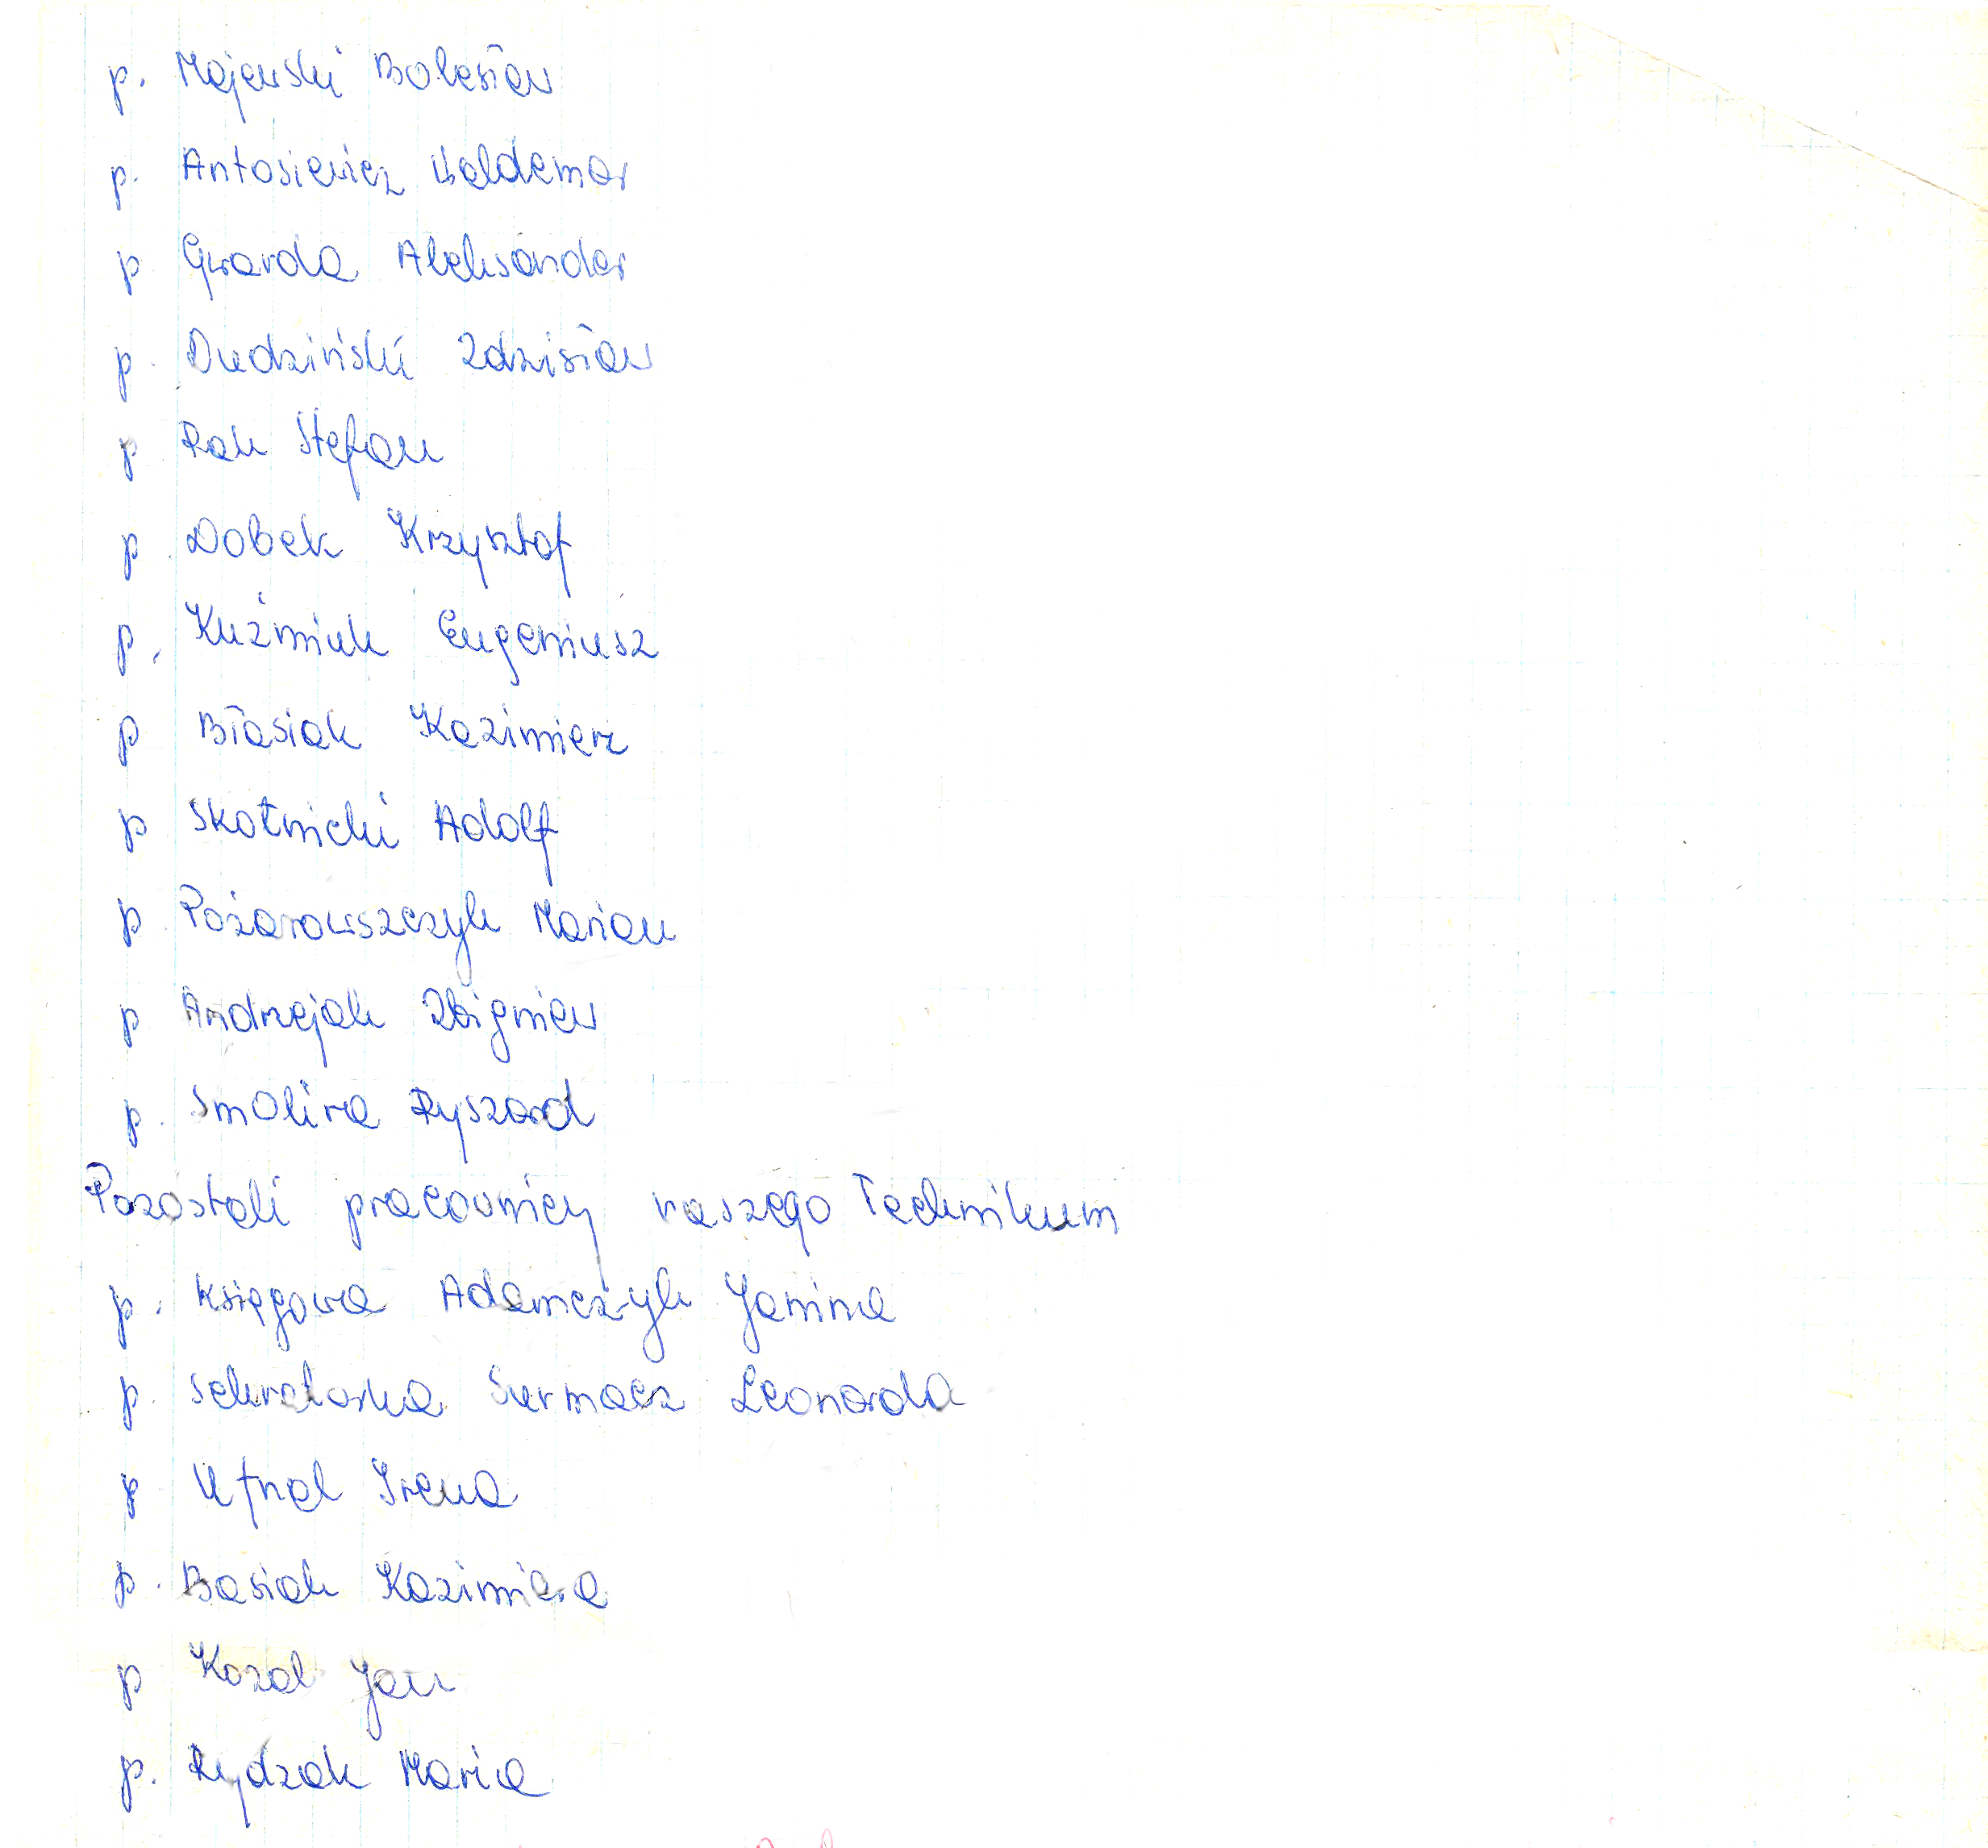 p. Majewski Bolesław
p. Antosiewicz Waldemar
p Gwarda Aleksander
p. Dudziński Zdzisław
p Rak Stefan
p. Dobek Krzysztof
p. Kuźmiuk Eugeniusz
p Błasiak Kazimierz
p Skotnicki Adolf
p. Pożarowszczyk Marian
p Andrzejak Zbigniew
p. Smolira Ryszard
Pozostali pracownicy naszego Technikum
p. księgowa Adamczyk Janina
p. sekretarka Surmacz Leonarda
p Ufnal Irena
p. Basiak Kazimiera
p Kozal Jan
p. Rydzak Maria